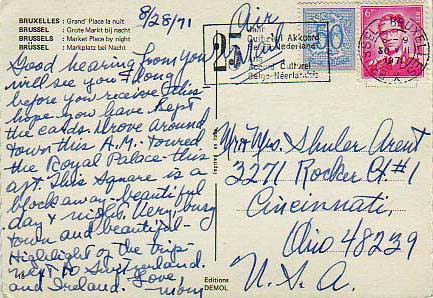 BRUXELLES : Grand' Place la nuit
BRUSSEL : Grote Markt bij nacht
BRUSSELS : Market Place by night
BRÜSSEL : Marktplatz bei Nacht
8/28/71
Good hearing from you
will see you & long
before you receive this -
hope you have kept
the cards. Drove around
town this A.M. Toured
the Royal Palace - this
aft. This Square is a
block away - beautiful
day & night. Very busy
town and beautiful -
Highlight of the trip -
next to Switzerland
and Ireland. Love,
Editions
DEMOL
Air
Mail
25
Cultureel Akkoord
België Nederland
ans
Accord Culturel
Belgo-Néerlandais
50
6
BRUXELLES
BRUSSEL
1971
Mr & Mrs. Shuler Arent
3271 Rocker Ct. #1
Cincinnati,
Ohio 48239
U.S.A.